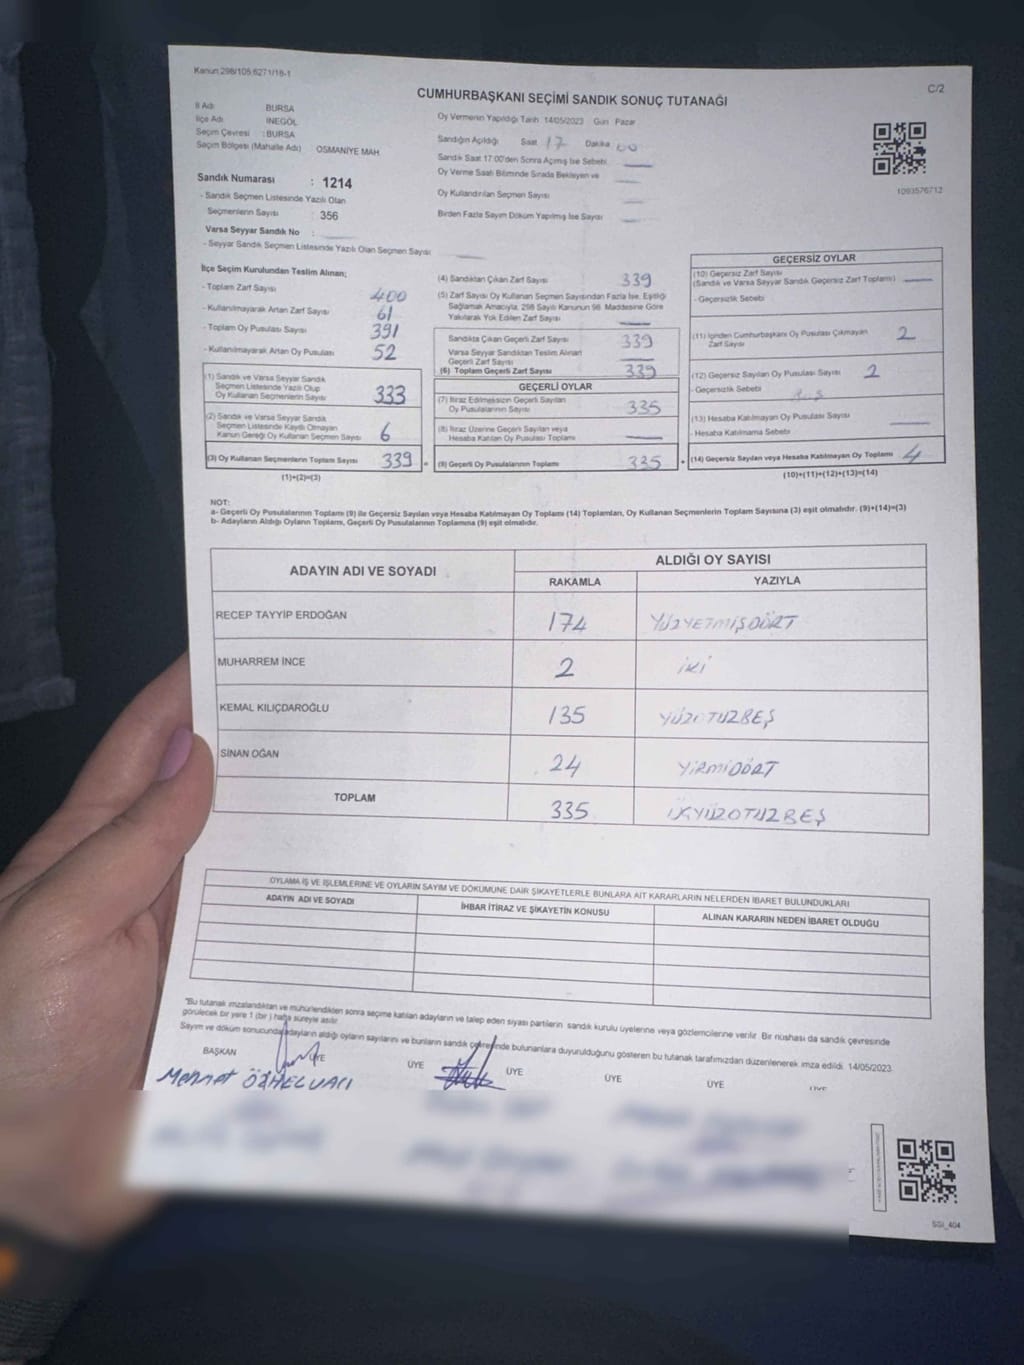 Kanun:298/105.6271/18-1
C/2
CUMHURBAŞKANI SEÇİMİ SANDIK SONUÇ TUTANAĞI
İl Adı BURSA
İlçe Adı İNEGÖL
Seçim Çevresi :BURSA
Seçim Bölgesi (Mahalle Adı) OSMANİYE MAH.
Sandık Numarası : 1214
- Sandık Seçmen Listesinde Yazılı Olan
Seçmenlerin Sayısı : 356
Varsa Seyyar Sandık No :
- Seyyar Sandık Seçmen Listesinde Yazılı Olan Seçmen Sayısı
Oy Vermenin Yapıldığı Tarih 14/05/2023 Gün Pazar
Sandığın Açıldığı Saat 17 Dakika 00
Sandık Saat 17:00'den Sonra Açmış İse Sebebi
Oy Verme Saati Bitiminde Sırada Bekleyen ve
Oy Kullandırılan Seçmen Sayısı
Birden Fazla Sayım Döküm Yapılmış İse Sayısı
1093576712
İlçe Seçim Kurulundan Teslim Alınan;
- Toplam Zarf Sayısı 400
- Kullanılmayarak Artan Zarf Sayısı 61
- Toplam Oy Pusulası Sayısı 391
- Kullanılmayarak Artan Oy Pusulası 52
(1) Sandık ve Varsa Seyyar Sandık
Seçmen Listesinde Yazılı Olup
Oy Kullanan Seçmenlerin Sayısı 333
(2) Sandık ve Varsa Seyyar Sandık
Seçmen Listesinde Kayıtlı Olmayan
Kanun Gereği Oy Kullanan Seçmen Sayısı 6
(3) Oy Kullanan Seçmenlerin Toplam Sayısı 339 =
(1)+(2)=(3)
(4) Sandıktan Çıkan Zarf Sayısı 339
(5) Zarf Sayısı Oy Kullanan Seçmen Sayısından Fazla İse, Eşitliği
Sağlamak Amacıyla, 298 Sayılı Kanunun 98. Maddesine Göre
Yakılarak Yok Edilen Zarf Sayısı
Sandıkta Çıkan Geçerli Zarf Sayısı 339
Varsa Seyyar Sandıktan Teslim Alınan
Geçerli Zarf Sayısı
(6) Toplam Geçerli Zarf Sayısı 339
GEÇERLİ OYLAR
(7) İtiraz Edilmeksizin Geçerli Sayılan
Oy Pusulalarının Sayısı 335
(8) İtiraz Üzerine Geçerli Sayılan veya
Hesaba Katılan Oy Pusulası Toplamı
(9) Geçerli Oy Pusulalarının Toplamı 335 +
GEÇERSİZ OYLAR
(10) Geçersiz Zarf Sayısı
(Sandık ve Varsa Seyyar Sandık Geçersiz Zarf Toplamı)
- Geçersizlik Sebebi
(11) İçinden Cumhurbaşkanı Oy Pusulası Çıkmayan
Zarf Sayısı 2
(12) Geçersiz Sayılan Oy Pusulası Sayısı 2
- Geçersizlik Sebebi
(13) Hesaba Katılmayan Oy Pusulası Sayısı
- Hesaba Katılmama Sebebi
(14) Geçersiz Sayılan veya Hesaba Katılmayan Oy Toplamı 4
(10)+(11)+(12)+(13)=(14)
NOT:
a- Geçerli Oy Pusulalarının Toplamı (9) ile Geçersiz Sayılan veya Hesaba Katılmayan Oy Toplamı (14) Toplamları, Oy Kullanan Seçmenlerin Toplam Sayısına (3) eşit olmalıdır. (9)+(14)=(3)
b- Adayların Aldığı Oyların Toplamı, Geçerli Oy Pusulalarının Toplamına (9) eşit olmalıdır.
ADAYIN ADI VE SOYADI ALDIĞI OY SAYISI
RAKAMLA YAZIYLA
RECEP TAYYİP ERDOĞAN 174 YÜZYETMİŞDÖRT
MUHARREM İNCE 2 İKİ
KEMAL KILIÇDAROĞLU 135 YÜZOTUZBEŞ
SİNAN OĞAN 24 YİRMİDÖRT
TOPLAM 335 ÜÇYÜZOTUZBEŞ
OYLAMA İŞ VE İŞLEMLERİNE VE OYLARIN SAYIM VE DÖKÜMÜNE DAİR ŞİKAYETLERLE BUNLARA AİT KARARLARIN NELERDEN İBARET BULUNDUKLARI
ADAYIN ADI VE SOYADI İHBAR İTİRAZ VE ŞİKAYETİN KONUSU ALINAN KARARIN NEDEN İBARET OLDUĞU
"Bu tutanak imzalandıktan ve mühürlendikten sonra seçime katılan adayların ve talep eden siyasi partilerin sandık kurulu üyelerine veya gözlemcilerine verilir. Bir nüshası da sandık çevresinde
görülecek bir yere 1 (bir) hafta süreyle asılır.
Sayım ve döküm sonucunda adayların aldığı oyların sayılarını ve bunların sandık çevresinde bulunanlara duyurulduğunu gösteren bu tutanak tarafımızdan düzenlenerek imza edildi. 14/05/2023
BAŞKAN ÜYE ÜYE ÜYE ÜYE ÜYE ÜYE
Mehmet
SSİ_404